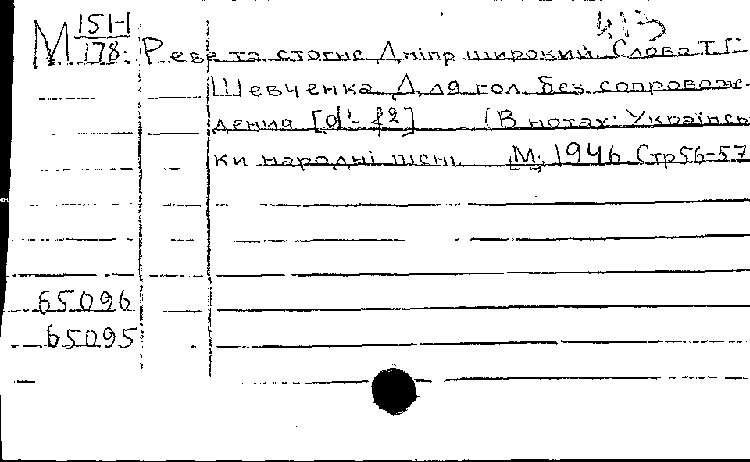 413
М 151-1 Реве та стогне Дніпр широкий. Слова Т.Г.
178.
Шевченка. Для гол. без сопровож-
дения [d'- f2] (В нотах: Українсь-
ки народні пісні. М., 1946. Стр 56-57
65096
65095